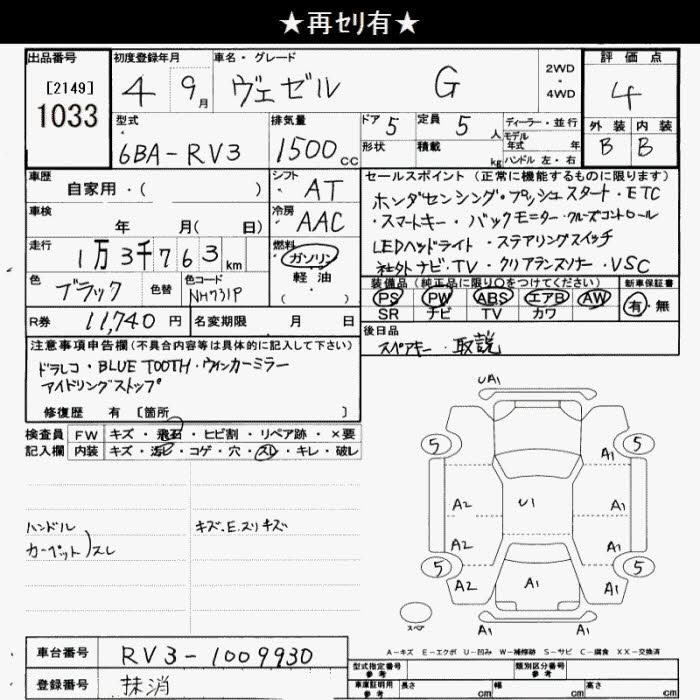 ★再セリ有★
出品番号 初度登録年月 車名・グレード 評価点
[2149] 1033 4 9月 ヴェゼル G 2WD・4WD 4
型式 排気量 ドア 5 定員 5人 ディーラー・並行 外装 内装
6BA-RV3 1500cc 形状 積載 kg モデル年式 年 ハンドル 左・右 B B
車歴 自家用・( ) シフト AT セールスポイント (正常に機能するものに限ります)
ホンダセンシング・プッシュスタート・ETC
車検 年 月( 日) 冷房 AAC ・スマートキー・バックモニター・クルーズコントロール
走行 1万3千763km 燃料 ガソリン・軽油・( ) LEDヘッドライト・ステアリングスイッチ
社外ナビ・TV・クリアランスソナー・VSC
色 ブラック 色替 色コード NH731P 装備品(純正品に限り○をつけてください) 新車保証書
PS PW ABS エアB AW 有・無
SR ナビ TV カワ
R券 11,740円 名変期限 月 日 後日品
スペアキー・取説
注意事項申告欄(不具合内容等は具体的に記入して下さい)
ドラレコ・BLUE TOOTH・ウィンカーミラー
アイドリングストップ
修復歴 有 [箇所 ]
検査員 FW キズ・飛石・ヒビ割・リペア跡・×要
記入欄 内装 キズ・汚レ・コゲ・穴・スレ・キレ・破レ
UA1
5 5
A1
A2 U1 A1
ハンドル キズ、E、スリキズ
カーペット)スレ
A2 A1
5 5
A2 A1 A1
スペア A1 A1
A-キズ E-エクボ U-凹み W-補修跡 S-サビ C-腐食 XX-交換済
車台番号 RV3-1009930
型式指定番号 参考 類別区分番号 参考
登録番号 抹消 車庫証明用 参考 長さ cm 幅 cm 高さ cm